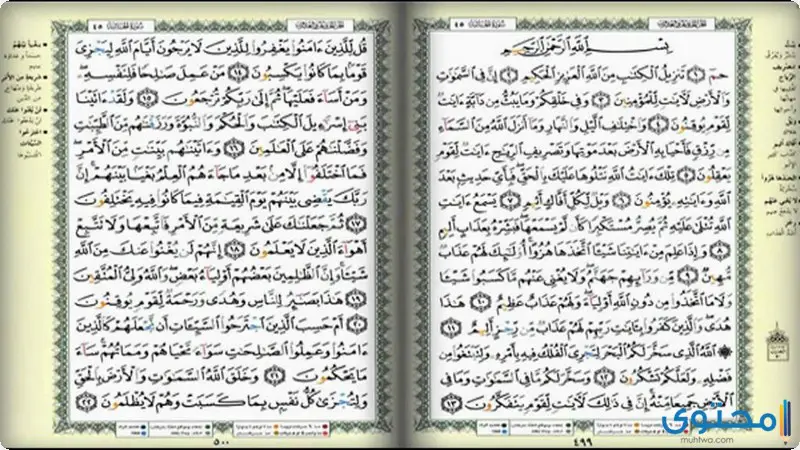 بِسْمِ اللَّهِ الرَّحْمَٰنِ الرَّحِيمِ
حمٓ ١ تَنزِيلُ الْكِتَٰبِ مِنَ اللَّهِ الْعَزِيزِ الْحَكِيمِ ٢ إِنَّ فِي السَّمَٰوَٰتِ
وَالْأَرْضِ لَءَايَٰتٍ لِّلْمُؤْمِنِينَ ٣ وَفِي خَلْقِكُمْ وَمَا يَبُثُّ مِن دَآبَّةٍ ءَايَٰتٌ
لِّقَوْمٍ يُوقِنُونَ ٤ وَاخْتِلَٰفِ الَّيْلِ وَالنَّهَارِ وَمَآ أَنزَلَ اللَّهُ مِنَ السَّمَآءِ
مِن رِّزْقٍ فَأَحْيَا بِهِ الْأَرْضَ بَعْدَ مَوْتِهَا وَتَصْرِيفِ الرِّيَٰحِ ءَايَٰتٌ لِّقَوْمٍ
يَعْقِلُونَ ٥ تِلْكَ ءَايَٰتُ اللَّهِ نَتْلُوهَا عَلَيْكَ بِالْحَقِّ فَبِأَيِّ حَدِيثٍ بَعْدَ
اللَّهِ وَءَايَٰتِهِ يُؤْمِنُونَ ٦ وَيْلٌ لِّكُلِّ أَفَّاكٍ أَثِيمٍ ٧ يَسْمَعُ ءَايَٰتِ
اللَّهِ تُتْلَىٰ عَلَيْهِ ثُمَّ يُصِرُّ مُسْتَكْبِرًا كَأَن لَّمْ يَسْمَعْهَا فَبَشِّرْهُ بِعَذَابٍ أَلِيمٍ
٨ وَإِذَا عَلِمَ مِنْ ءَايَٰتِنَا شَيْـًٔا اتَّخَذَهَا هُزُوًا أُولَٰٓئِكَ لَهُمْ عَذَابٌ
مُّهِينٌ ٩ مِّن وَرَآئِهِمْ جَهَنَّمُ وَلَا يُغْنِي عَنْهُم مَّا كَسَبُوا شَيْـًٔا
وَلَا مَا اتَّخَذُوا مِن دُونِ اللَّهِ أَوْلِيَآءَ وَلَهُمْ عَذَابٌ عَظِيمٌ ١٠ هَٰذَا
هُدًى وَالَّذِينَ كَفَرُوا بِـَٔايَٰتِ رَبِّهِمْ لَهُمْ عَذَابٌ مِّن رِّجْزٍ أَلِيمٌ ١١
۞ اللَّهُ الَّذِي سَخَّرَ لَكُمُ الْبَحْرَ لِتَجْرِيَ الْفُلْكُ فِيهِ بِأَمْرِهِ وَلِتَبْتَغُوا مِن
فَضْلِهِ وَلَعَلَّكُمْ تَشْكُرُونَ ١٢ وَسَخَّرَ لَكُم مَّا فِي السَّمَٰوَٰتِ وَمَا فِي
الْأَرْضِ جَمِيعًا مِّنْهُ إِنَّ فِي ذَٰلِكَ لَءَايَٰتٍ لِّقَوْمٍ يَتَفَكَّرُونَ ١٣
٤٩٩
قُل لِّلَّذِينَ ءَامَنُوا يَغْفِرُوا لِلَّذِينَ لَا يَرْجُونَ أَيَّامَ اللَّهِ لِيَجْزِيَ
قَوْمًا بِمَا كَانُوا يَكْسِبُونَ ١٤ مَنْ عَمِلَ صَٰلِحًا فَلِنَفْسِهِ
وَمَنْ أَسَآءَ فَعَلَيْهَا ثُمَّ إِلَىٰ رَبِّكُمْ تُرْجَعُونَ ١٥ وَلَقَدْ ءَاتَيْنَا
بَنِيٓ إِسْرَٰٓءِيلَ الْكِتَٰبَ وَالْحُكْمَ وَالنُّبُوَّةَ وَرَزَقْنَٰهُم مِّنَ الطَّيِّبَٰتِ
وَفَضَّلْنَٰهُمْ عَلَى الْعَٰلَمِينَ ١٦ وَءَاتَيْنَٰهُم بَيِّنَٰتٍ مِّنَ الْأَمْرِ
فَمَا اخْتَلَفُوٓا إِلَّا مِن بَعْدِ مَا جَآءَهُمُ الْعِلْمُ بَغْيًا بَيْنَهُمْ إِنَّ
رَبَّكَ يَقْضِي بَيْنَهُمْ يَوْمَ الْقِيَٰمَةِ فِيمَا كَانُوا فِيهِ يَخْتَلِفُونَ
١٧ ثُمَّ جَعَلْنَٰكَ عَلَىٰ شَرِيعَةٍ مِّنَ الْأَمْرِ فَاتَّبِعْهَا وَلَا تَتَّبِعْ
أَهْوَآءَ الَّذِينَ لَا يَعْلَمُونَ ١٨ إِنَّهُمْ لَن يُغْنُوا عَنكَ مِنَ اللَّهِ
شَيْـًٔا وَإِنَّ الظَّٰلِمِينَ بَعْضُهُمْ أَوْلِيَآءُ بَعْضٍ وَاللَّهُ وَلِيُّ الْمُتَّقِينَ
١٩ هَٰذَا بَصَٰٓئِرُ لِلنَّاسِ وَهُدًى وَرَحْمَةٌ لِّقَوْمٍ يُوقِنُونَ
٢٠ أَمْ حَسِبَ الَّذِينَ اجْتَرَحُوا السَّيِّـَٔاتِ أَن نَّجْعَلَهُمْ كَالَّذِينَ
ءَامَنُوا وَعَمِلُوا الصَّٰلِحَٰتِ سَوَآءً مَّحْيَاهُمْ وَمَمَاتُهُمْ سَآءَ
مَا يَحْكُمُونَ ٢١ وَخَلَقَ اللَّهُ السَّمَٰوَٰتِ وَالْأَرْضَ بِالْحَقِّ
وَلِتُجْزَىٰ كُلُّ نَفْسٍ بِمَا كَسَبَتْ وَهُمْ لَا يُظْلَمُونَ ٢٢
٥٠٠
محتوى
muhtwa.com